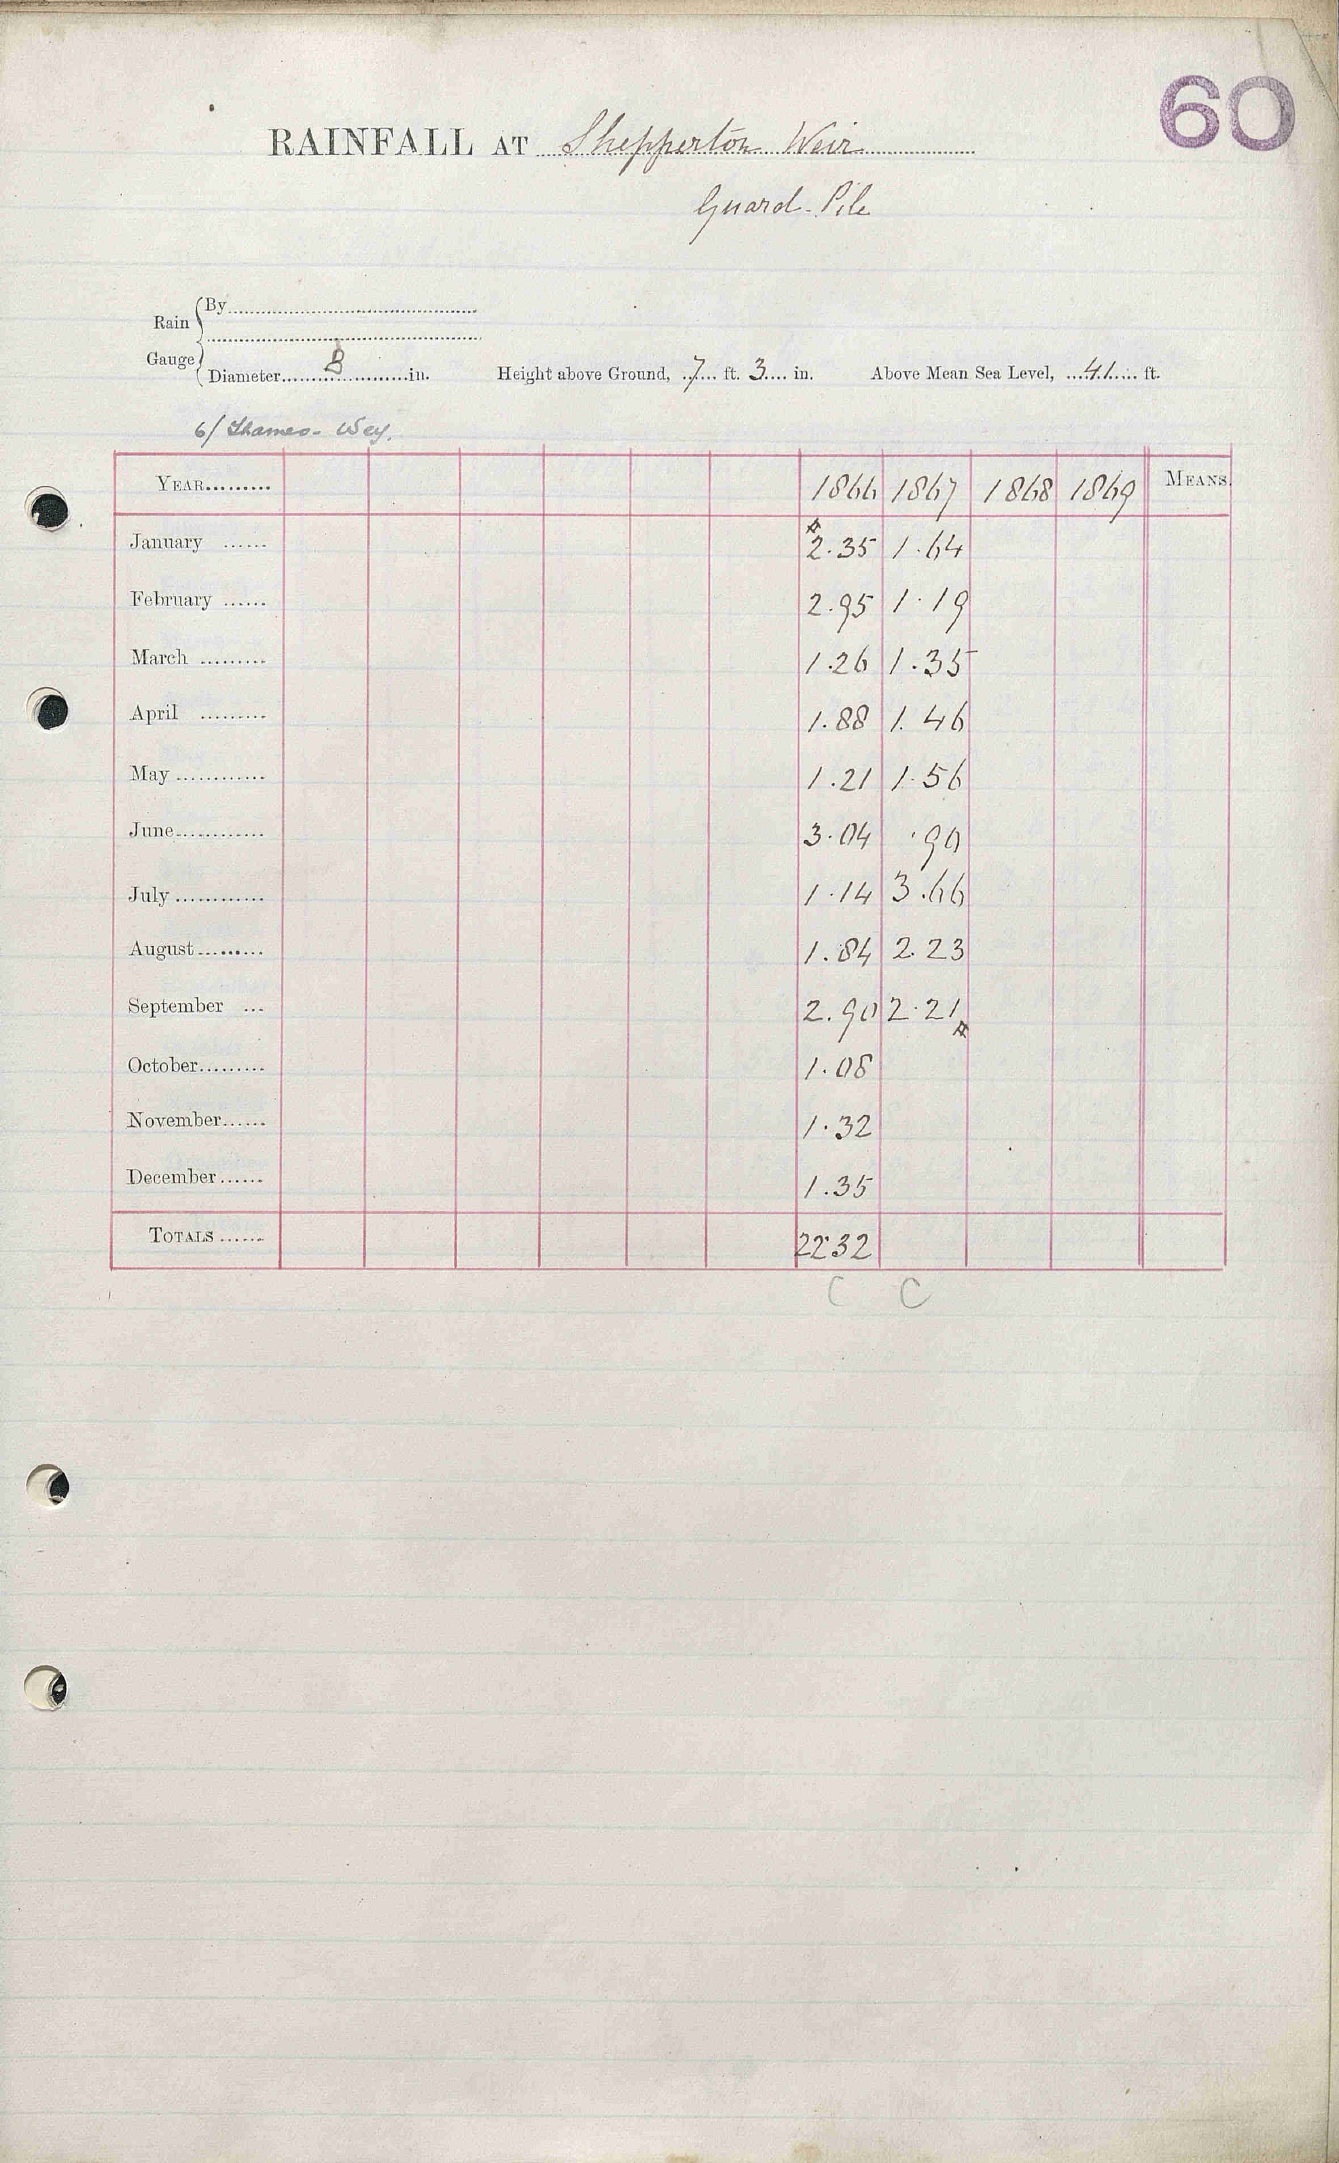 60
RAINFALL AT Shepperton Weir
Guard-Pile
Rain Gauge
By
Diameter 8 in. Height above Ground, 7 ft. 3 in. Above Mean Sea Level, 41 ft.
6/ Thames-Wey.
YEAR 1866 1867 1868 1869 MEANS.
January 2.35 1.64
February 2.95 1.19
March 1.26 1.35
April 1.88 1.46
May 1.21 1.56
June 3.04 .90
July 1.14 3.66
August 1.84 2.23
September 2.90 2.21
October 1.08
November 1.32
December 1.35
TOTALS 22.32
C C